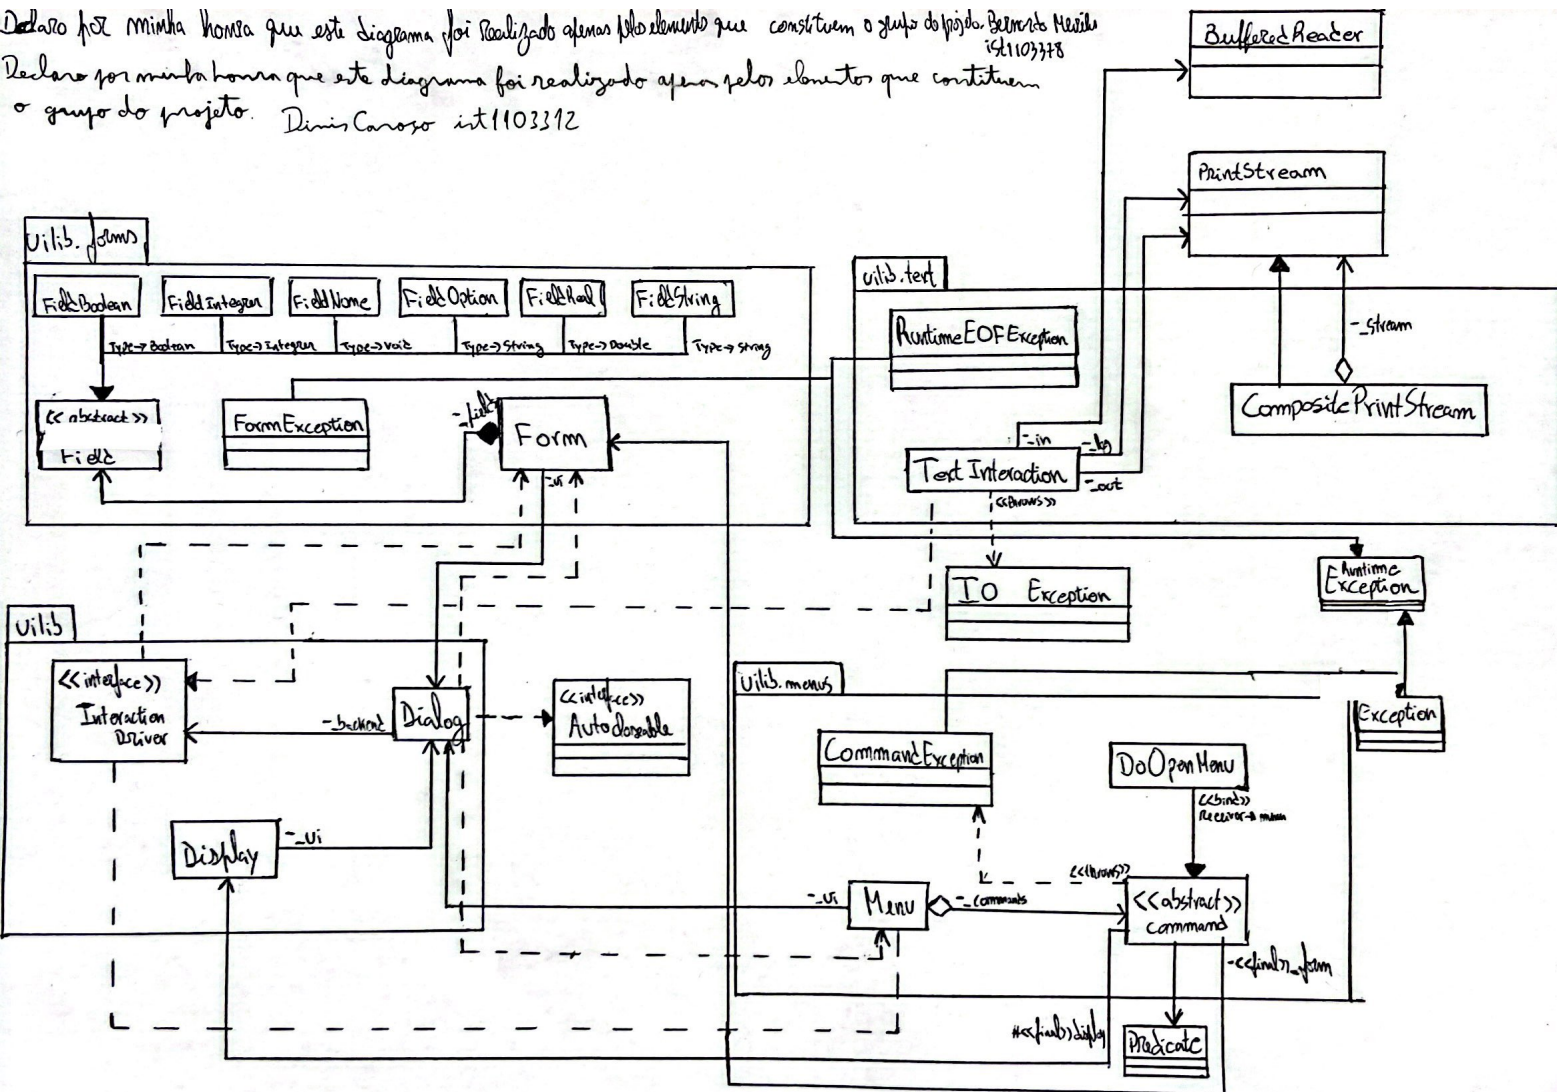 Declaro por minha honra que este diagrama foi realizado apenas pelos elementos que constituem o grupo do projeto. Bernardo
ist1103378
Declaro por minha honra que este diagrama foi realizado apenas pelos elementos que contituem
o grupo do projeto. Dinis Caroço ist1103312
BufferedReader
PrintStream
Uilib.forms
FieldBoolean
FieldInteger
FieldNome
FieldOption
FieldReal
FieldString
Type→Boolean
Type→Integer
Type→Void
Type→String
Type→Double
Type→String
<<abstract>>
Field
FormException
-_fields
Form
-_ui
uilib.text
RuntimeEOFException
-_stream
CompositePrintStream
-_in
-_log
Text Interaction
-_out
<<throws>>
IO Exception
Runtime
Exception
Exception
Uilib
<<interface>>
Interaction
Driver
-_backend
Dialog
<<interface>>
Autocloseable
Display
-_ui
Uilib.menus
CommandException
DoOpenMenu
<<bind>>
<<throws>>
-_ui
Menu
-_commands
<<abstract>>
command
-<<final>>_form
#<<final>>display
Predicate